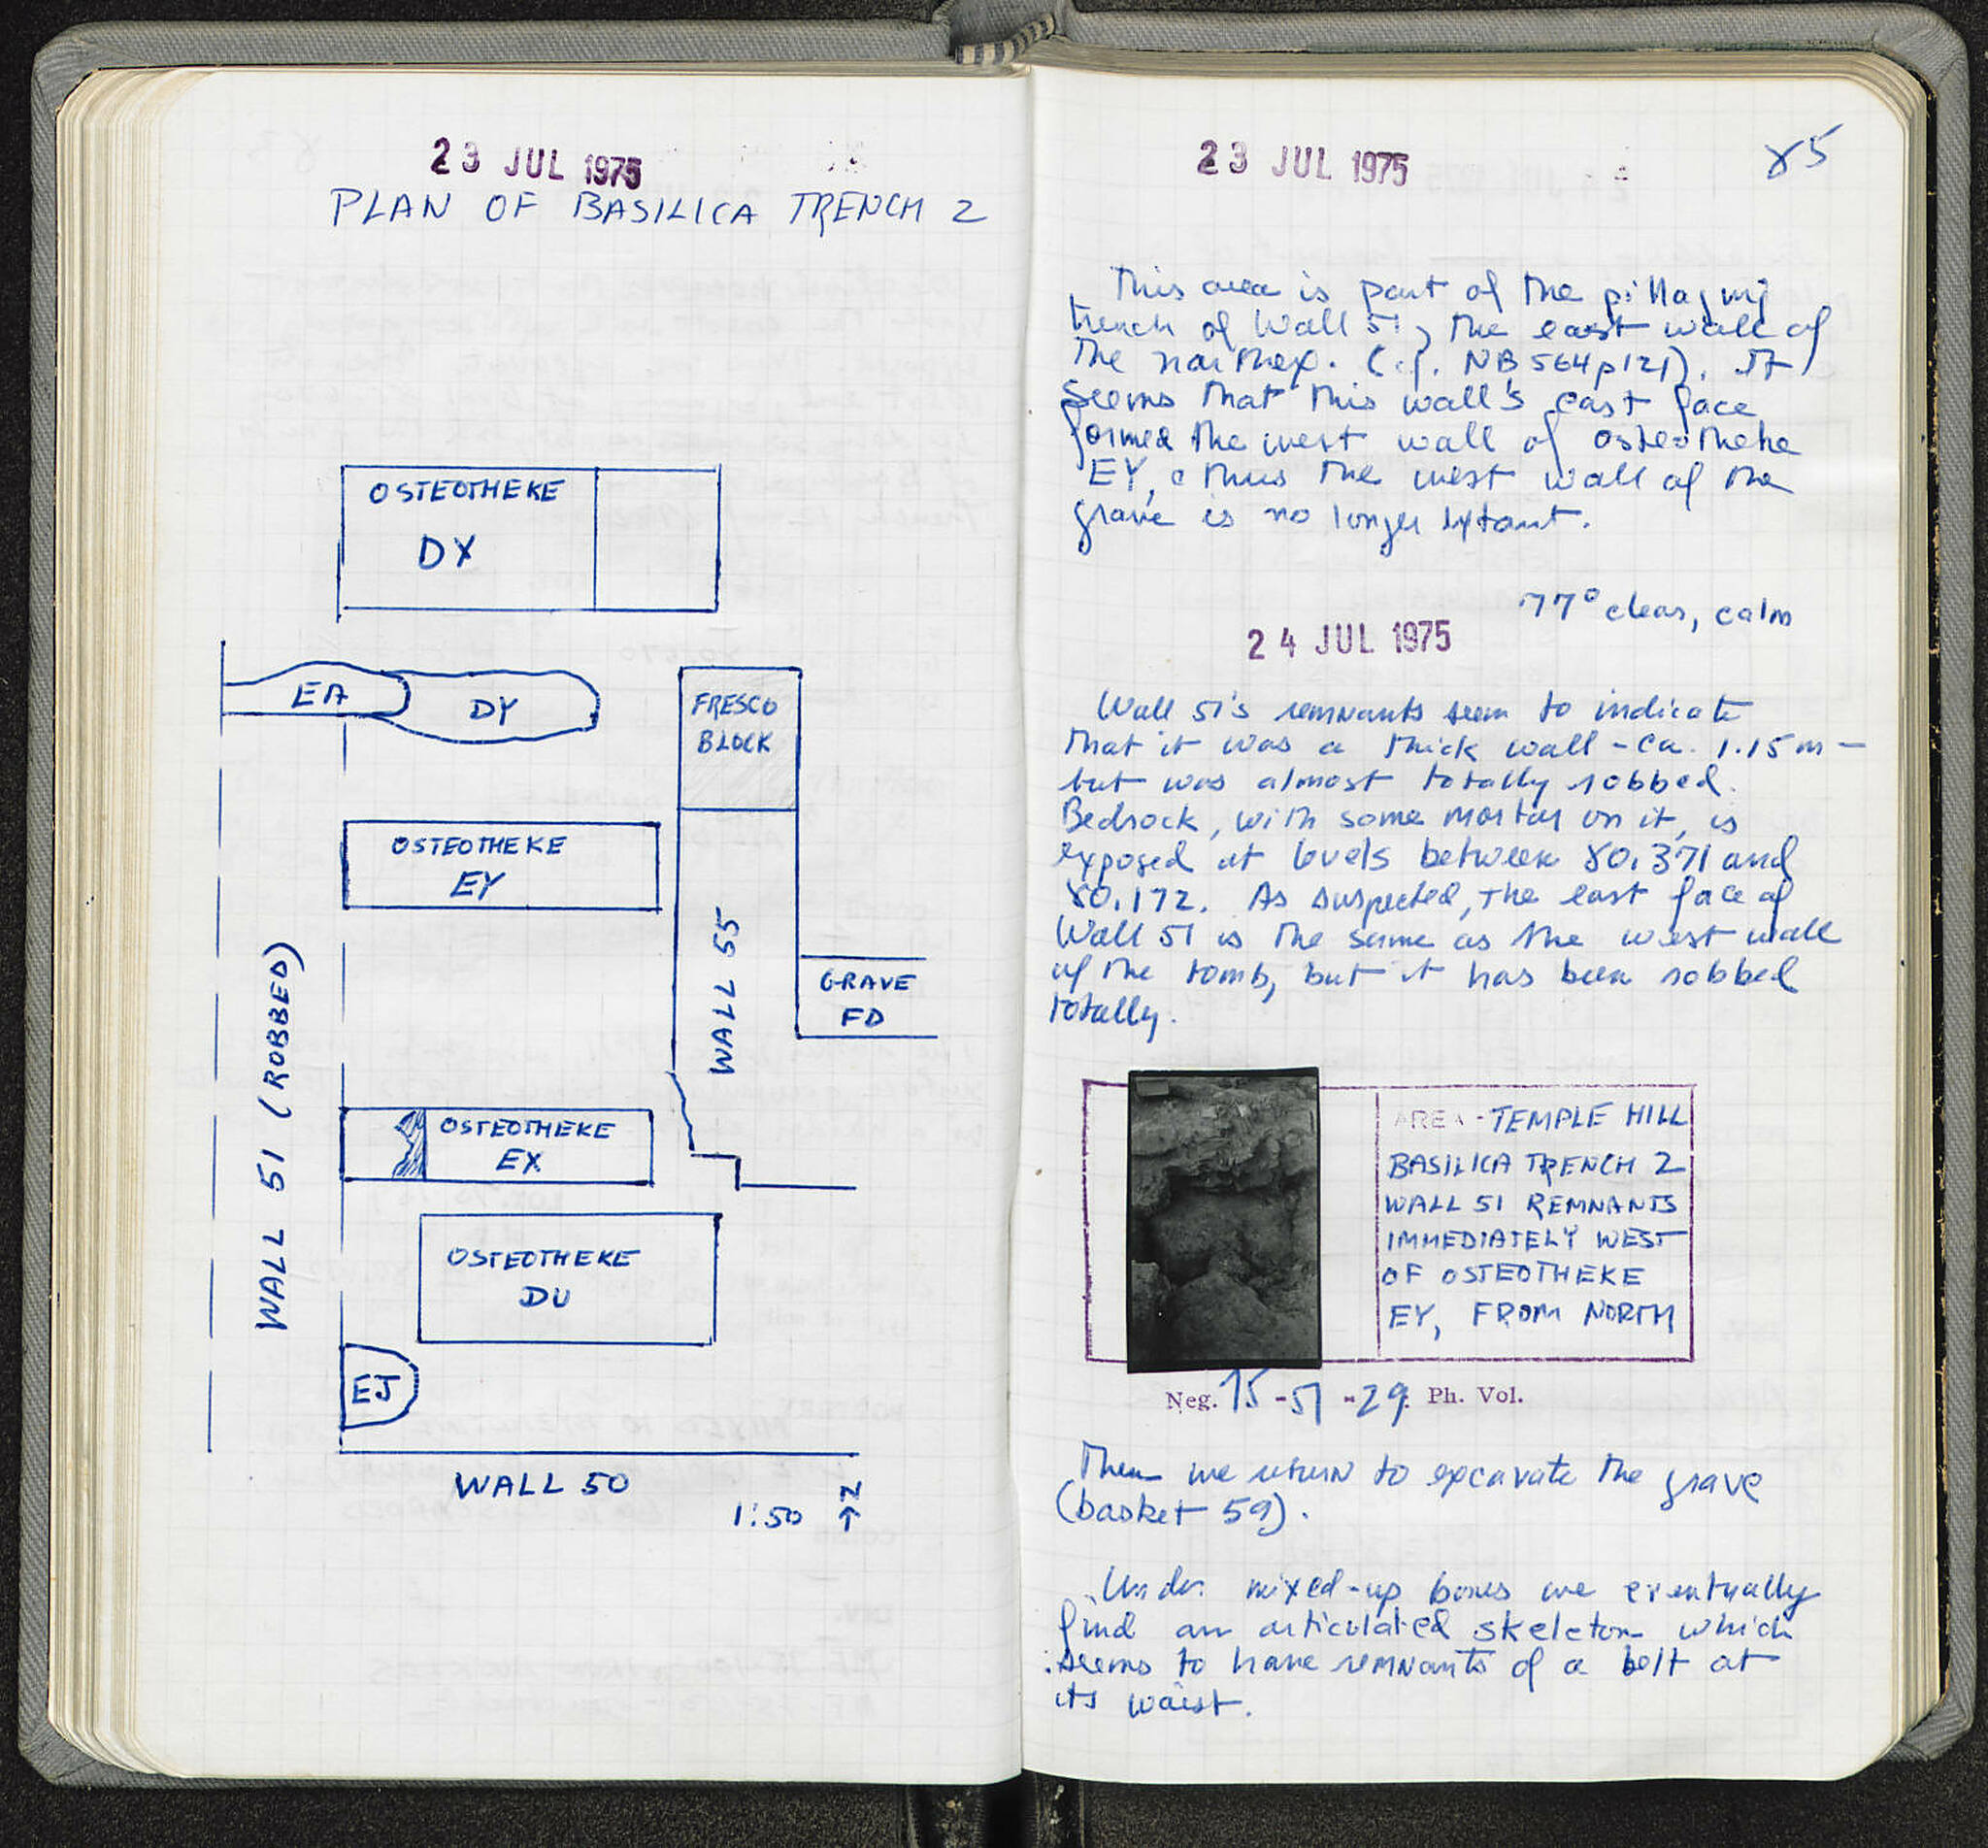 23 JUL 1975
PLAN OF BASILICA TRENCH 2
OSTEOTHEKE
DX
EA
DY
FRESCO
BLOCK
OSTEOTHEKE
EY
WALL 51 (ROBBED)
WALL 55
GRAVE
FD
OSTEOTHEKE
EX
OSTEOTHEKE
DU
EJ
WALL 50
1:50
N
23 JUL 1975
85
This area is part of the pillaging
trench of Wall 51, the east wall of
the narthex. (cf. NB 564 p 121). It
seems that this wall's east face
formed the west wall of osteotheke
EY, & thus the west wall of the
grave is no longer extant.
77° clear, calm
24 JUL 1975
Wall 51's remnants seem to indicate
that it was a thick wall - ca. 1.15 m -
but was almost totally robbed.
Bedrock, with some mortar on it, is
exposed at levels between 80.371 and
80.172. As suspected, the east face of
Wall 51 is the same as the west wall
of the tomb, but it has been robbed
totally.
AREA - TEMPLE HILL
BASILICA TRENCH 2
WALL 51 REMNANTS
IMMEDIATELY WEST
OF OSTEOTHEKE
EY, FROM NORTH
Neg. 75-51-29. Ph. Vol.
Then we return to excavate the grave
(basket 59).
Under mixed-up bones we eventually
find an articulated skeleton which
seems to have remnants of a belt at
its waist.